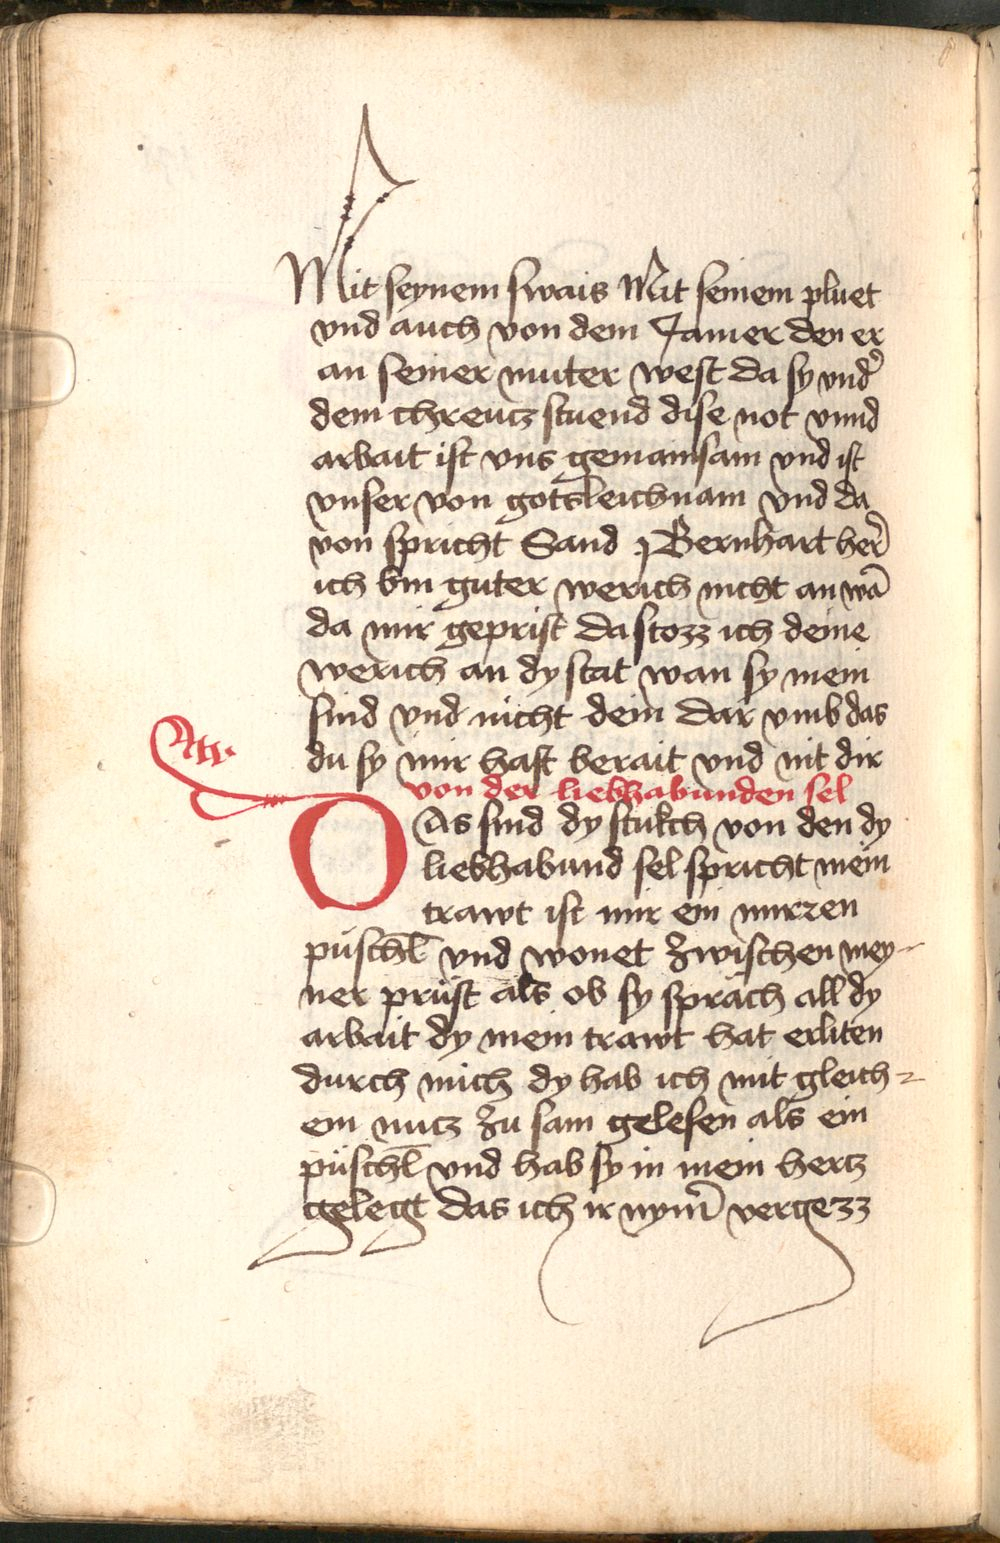 Mit seynem swais Mit seinem pluet
vnd auch von dem Jamer den er
an seiner muter west da sy vnd̉
dem chreucz stuend dise not vnnd
arbait ist vns gemainsam vnd ist
vnser von gotsleichnam vnd da
von spricht Sand Bernhart her̉
ich bin guter werich nicht an wā
da mir geprist da stozz ich deine
werich an dy stat wan sy mein
sind vnd nicht dein dar vmb das
du sy mir hast berait vnd nit dir
von der liebhabunden sel
DAs sind dy stukch von den dy
liebhabund sel spricht mein
trawt ist mir ein mirren
püschl̄ vnd wonet zwischen mey-
ner prüst als ob sy sprach all dy
arbait dy mein trawt hat erliten
durch mich dy hab ich mit gleich-
em nucz zu sam gelesen als ein
püschl̄ vnd hab sy in mein hercz
gelegt das ich ir nym̄ vergezz